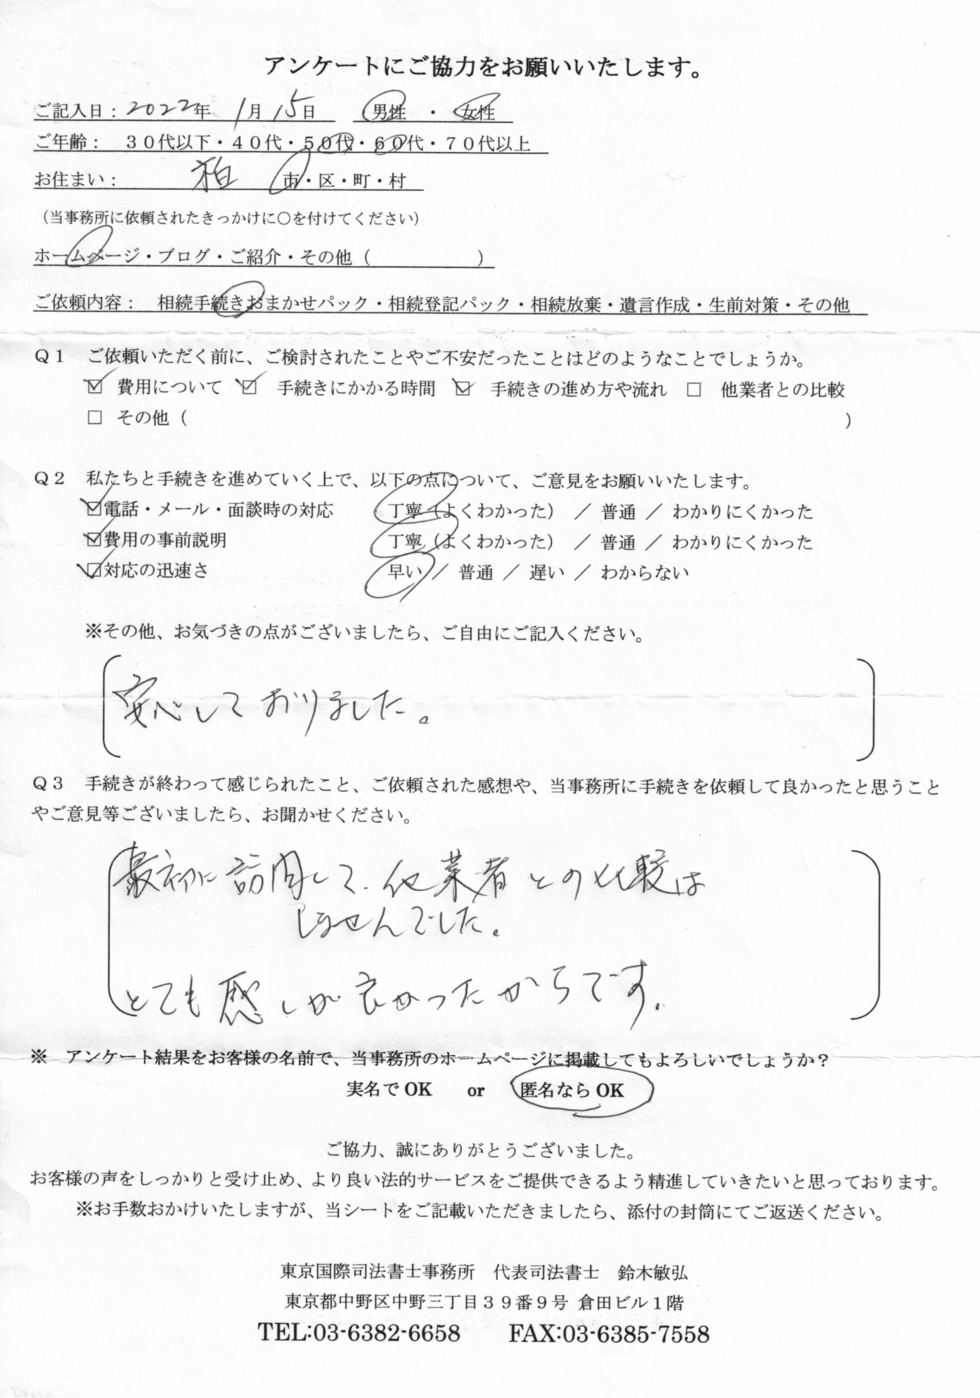 アンケートにご協力をお願いいたします。
ご記入日：2022年 1月 15日 男性 ・ 女性
ご年齢： ３０代以下・４０代・５０代・６０代・７０代以上
お住まい： 柏 市・区・町・村
（当事務所に依頼されたきっかけに○を付けてください）
ホームページ・ブログ・ご紹介・その他（ ）
ご依頼内容： 相続手続きおまかせパック・相続登記パック・相続放棄・遺言作成・生前対策・その他
Ｑ１ ご依頼いただく前に、ご検討されたことやご不安だったことはどのようなことでしょうか。
☑ 費用について ☑ 手続きにかかる時間 ☑ 手続きの進め方や流れ □ 他業者との比較
□ その他（ ）
Ｑ２ 私たちと手続きを進めていく上で、以下の点について、ご意見をお願いいたします。
☑電話・メール・面談時の対応 丁寧（よくわかった） ／ 普通 ／ わかりにくかった
☑費用の事前説明 丁寧（よくわかった） ／ 普通 ／ わかりにくかった
☑対応の迅速さ 早い ／ 普通 ／ 遅い ／ わからない
※その他、お気づきの点がございましたら、ご自由にご記入ください。
安心しておりました。
Ｑ３ 手続きが終わって感じられたこと、ご依頼された感想や、当事務所に手続きを依頼して良かったと思うこと
やご意見等ございましたら、お聞かせください。
最初に訪問して、他業者との比較は
しませんでした。
とても感じが良かったからです。
※ アンケート結果をお客様の名前で、当事務所のホームページに掲載してもよろしいでしょうか？
実名で OK or 匿名なら OK
ご協力、誠にありがとうございました。
お客様の声をしっかりと受け止め、より良い法的サービスをご提供できるよう精進していきたいと思っております。
※お手数おかけいたしますが、当シートをご記載いただきましたら、添付の封筒にてご返送ください。
東京国際司法書士事務所 代表司法書士 鈴木敏弘
東京都中野区中野三丁目３９番９号 倉田ビル１階
TEL:03-6382-6658 FAX:03-6385-7558